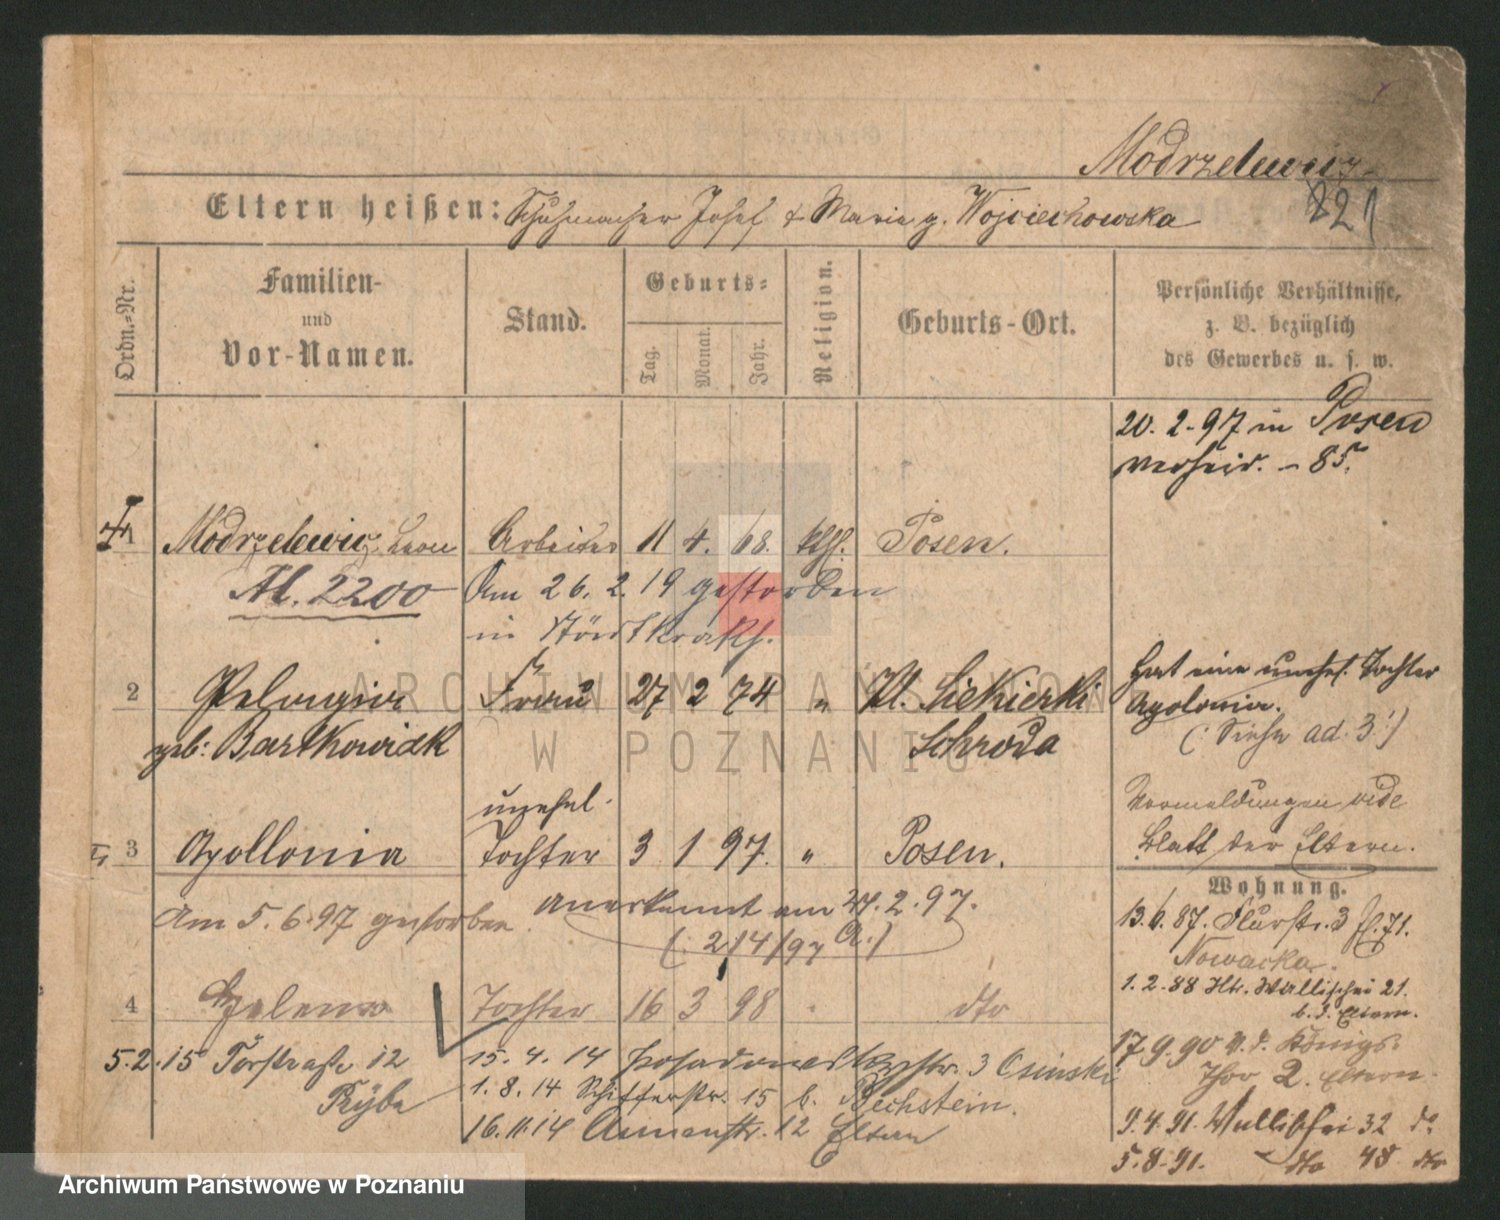 Modrzelewicz
Eltern heißen: Schuhmacher Josef & Marie g. Wojciechowska
221
Ordn.-Nr.
Familien-
und
Vor-Namen.
Stand.
Geburts-
Tag.
Monat.
Jahr.
Religion.
Geburts-Ort.
Persönliche Verhältnisse,
z. B. bezüglich
des Gewerbes u. s. w.
20. 2. 97 in Posen
verheir. - 85.
1 Modrzelewicz Leon Arbeiter 11 4. 68. kth. Posen.
Al. 2200
Am 26. 2. 19 gestorben
in Stdtkrakh.
2 Pelagia Frau 27 2 74 " Kl. Siekierki
geb: Bartkowiak Schroda
Hat eine unehel. Tochter
Apolonia.
(: Siehe ad. 3 :)
unehel.
3 Apollonia Tochter 3 1 97. " Posen.
Vermeldungen vide
Blatt der Eltern.
Am 5. 6. 97 gestorben
anerkannt am 27. 2. 97.
(214/97 A.)
Wohnung.
13. 6. 87. Flurstr. 3
Nowacka.
1. 2. 88 Htr. Wallischei 21.
b. d. Eltern.
4 Helena Tochter 16 3 98 " dto
17. 9. 90 a. d. Königs-
thor 2. Eltern.
9. 4. 91. Wallischei 32 do
5. 8. 91. dto 48 dto
5. 2. 15 Torstraße 12
Ryba
15. 4. 14 Posadowskystr. 3 Osinski
1. 8. 14 Schifferstr. 15 b. Bechstein.
16. 11. 14 Annenstr. 12 Eltern
ARCHIWUM PAŃSTWOWE
W POZNANIU
Archiwum Państwowe w Poznaniu